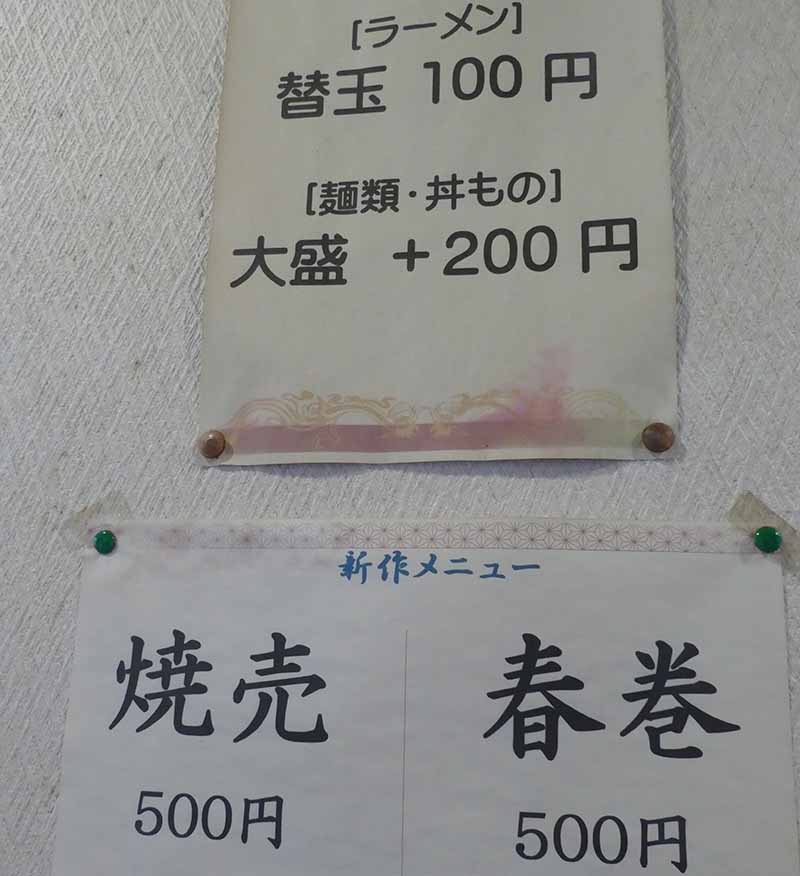 [ラーメン]
替玉 100円
[麺類・丼もの]
大盛 +200円
新作メニュー
焼売 春巻
500円 500円